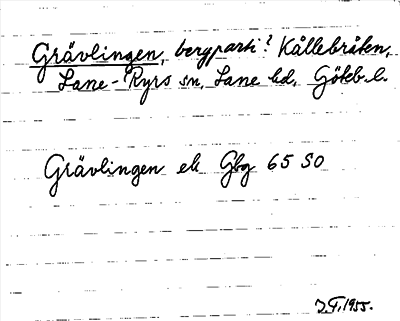 Grävlingen, bergparti? Kållebråten,
Lane-Ryrs sn, Lane hd, Göteb. l.
Grävlingen ek Gbg 65 SO
I.F., 1955.